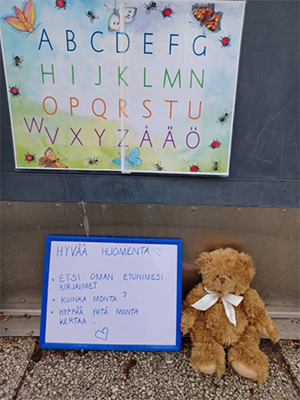 A B C D E F G
H I J K L M N
O P Q R S T U
W V X Y Z Å Ä Ö
HYVÄÄ HUOMENTA
• ETSI OMAN ETUNIMESI
KIRJAIMET
• KUINKA MONTA?
• HYPPÄÄ YHTÄ MONTA
KERTAA.